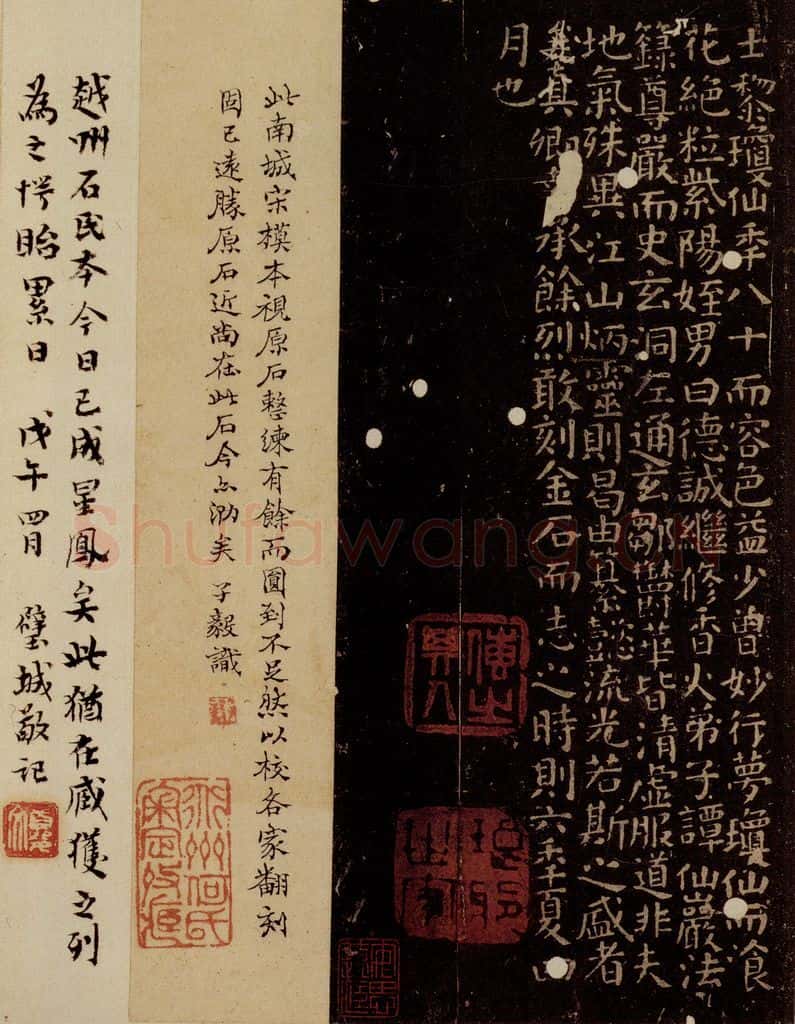 士黎瓊仙年八十而容色益少曾妙行夢瓊仙而飡
花絶粒紫陽姪男曰德誠繼修香火弟子譚仙巖法
籙尊嚴而史玄洞左通玄鄒鬱華皆清虛服道非夫
地氣殊異江山炳靈則曷由纂懿流光若斯之盛者
矣真卿幸承餘烈敢刻金石而志之時則六年夏四
月也
此南城宋模本視原石整練有餘而圓到不足然以校各家翻刻
固已遠勝原石近尚在此石今亦泐矣 子毅識
越州石氏本今日已成星鳳矣此猶在臧獲之列
為之愕眙累日 戊午四月 璧城敬記
Shufawang.cn